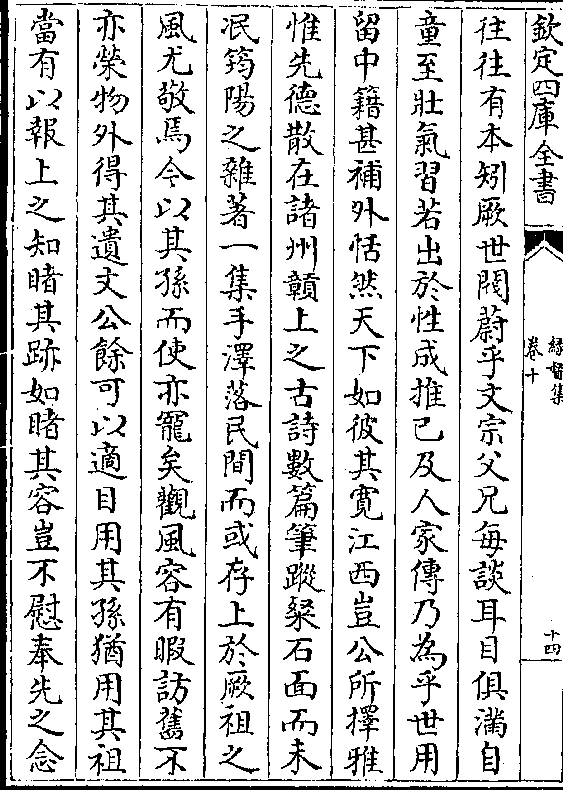 欽定四庫全書
緣督集
卷十
十四
往往有本矧厥世閥蔚乎文宗父兄每談耳目俱滿自
童至壯氣習若出於性成推已及人家傳乃為乎世用
留中籍甚補外恬然天下如彼其寛江西豈公所擇雅
惟先德散在諸州贑上之古詩數篇筆蹤粲石面而未
泯筠陽之雜著一集手澤落民間而或存上於厥祖之
風尤敬焉今以其孫而使亦寵矣觀風容有暇訪舊不
亦榮物外得其遺文公餘可以適目用其孫猶用其祖
當有以報上之知睹其跡如睹其容豈不慰奉先之念